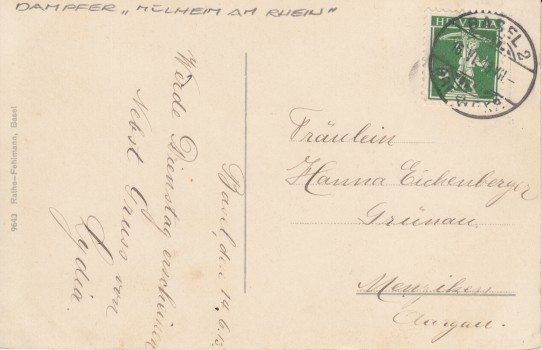 DAMPFER „MÜLHEIM AM RHEIN"
Basel, den 14.6.13.
Werde Dienstag erscheinen
Nebst Gruss von
Lydia.
9643 Rathe-Fehlmann, Basel
HELVETIA
BASEL 2
Fräulein
Hanna Eichenberger
Grünau
Menziken
Aargau.